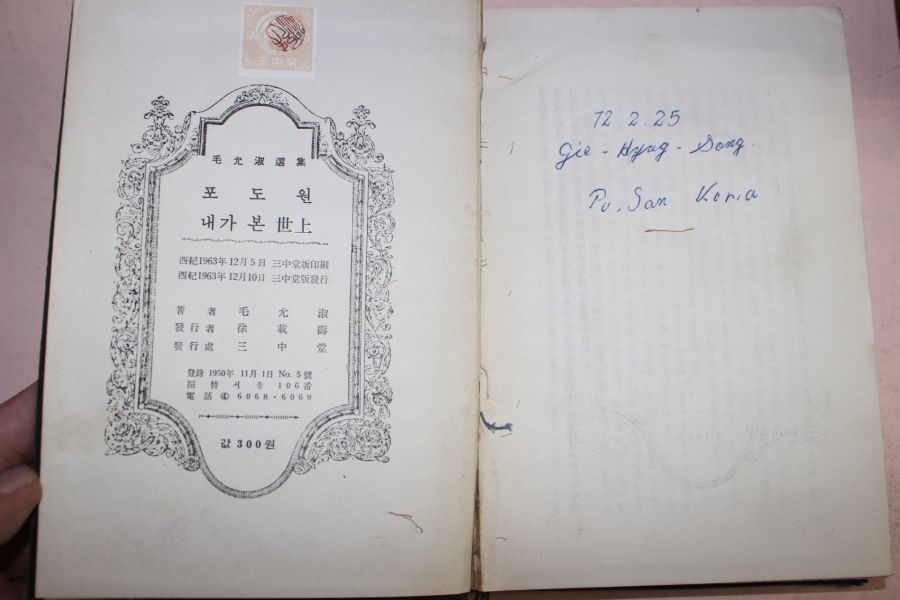 三中堂
毛允淑選集
포도원
내가 본 世上
西紀1963年 12月 5日 三中堂版印刷
西紀1963年 12月10日 三中堂版發行
著者 毛允淑
發行者 徐載壽
發行處 三中堂
登錄 1950年 11月 1日 No. 5號
振替 서울 106番
電話 ④ 6068·6069
값 300원
72.2.25
Gie-Hyug-Song
Pu.San Koria